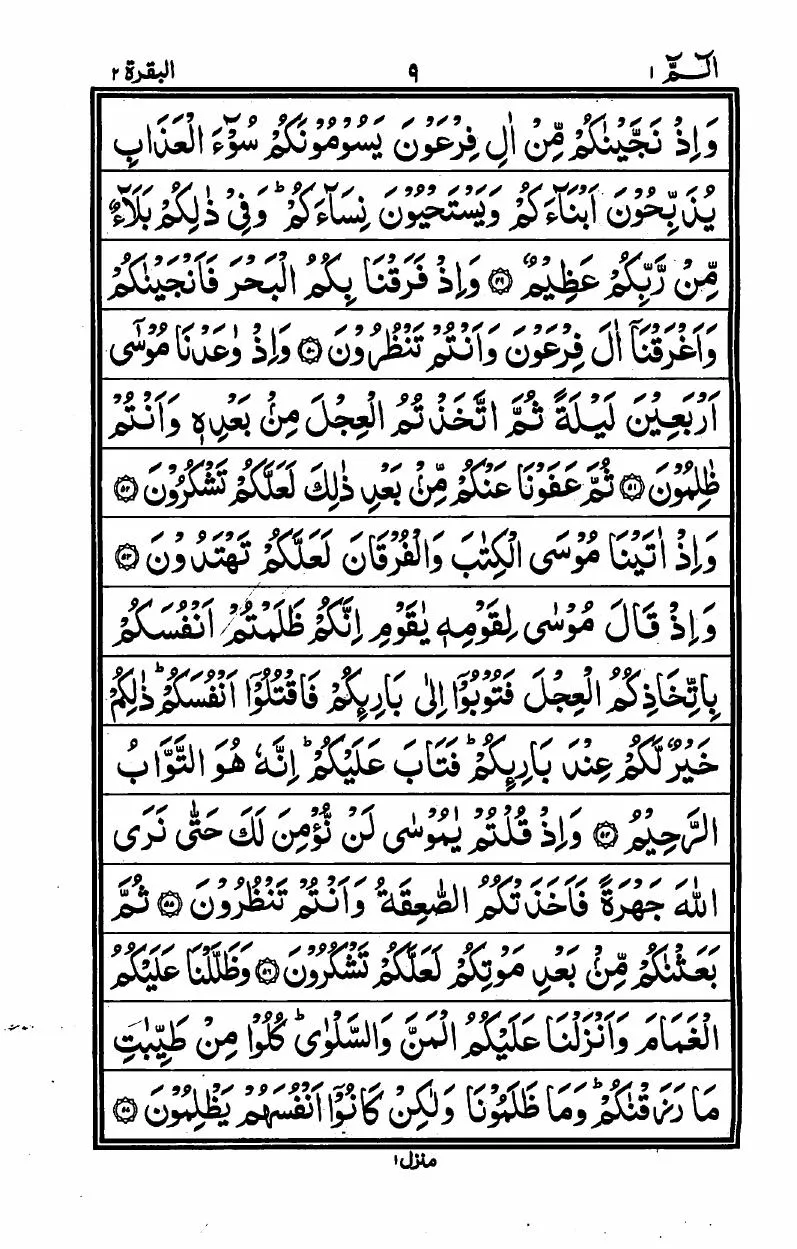 الٓـمّٓ ١ ٩ البقرة ٢
وَاِذْ نَجَّيْنٰكُمْ مِّنْ اٰلِ فِرْعَوْنَ يَسُوْمُوْنَكُمْ سُوْٓءَ الْعَذَابِ
يُذَبِّحُوْنَ اَبْنَآءَكُمْ وَيَسْتَحْيُوْنَ نِسَآءَكُمْ ؕ وَفِيْ ذٰلِكُمْ بَلَآءٌ
مِّنْ رَّبِّكُمْ عَظِيْمٌ ۝٤٩ وَاِذْ فَرَقْنَا بِكُمُ الْبَحْرَ فَاَنْجَيْنٰكُمْ
وَاَغْرَقْنَآ اٰلَ فِرْعَوْنَ وَاَنْتُمْ تَنْظُرُوْنَ ۝٥٠ وَاِذْ وٰعَدْنَا مُوْسٰٓى
اَرْبَعِيْنَ لَيْلَةً ثُمَّ اتَّخَذْتُمُ الْعِجْلَ مِنْۢ بَعْدِهٖ وَاَنْتُمْ
ظٰلِمُوْنَ ۝٥١ ثُمَّ عَفَوْنَا عَنْكُمْ مِّنْۢ بَعْدِ ذٰلِكَ لَعَلَّكُمْ تَشْكُرُوْنَ ۝٥٢
وَاِذْ اٰتَيْنَا مُوْسَى الْكِتٰبَ وَالْفُرْقَانَ لَعَلَّكُمْ تَهْتَدُوْنَ ۝٥٣
وَاِذْ قَالَ مُوْسٰى لِقَوْمِهٖ يٰقَوْمِ اِنَّكُمْ ظَلَمْتُمْ اَنْفُسَكُمْ
بِاتِّخَاذِكُمُ الْعِجْلَ فَتُوْبُوْٓا اِلٰى بَارِىِٕكُمْ فَاقْتُلُوْٓا اَنْفُسَكُمْ ؕ ذٰلِكُمْ
خَيْرٌ لَّكُمْ عِنْدَ بَارِىِٕكُمْ ؕ فَتَابَ عَلَيْكُمْ ؕ اِنَّهٗ هُوَ التَّوَّابُ
الرَّحِيْمُ ۝٥٤ وَاِذْ قُلْتُمْ يٰمُوْسٰى لَنْ نُّؤْمِنَ لَكَ حَتّٰى نَرَى
اللّٰهَ جَهْرَةً فَاَخَذَتْكُمُ الصّٰعِقَةُ وَاَنْتُمْ تَنْظُرُوْنَ ۝٥٥ ثُمَّ
بَعَثْنٰكُمْ مِّنْۢ بَعْدِ مَوْتِكُمْ لَعَلَّكُمْ تَشْكُرُوْنَ ۝٥٦ وَظَلَّلْنَا عَلَيْكُمُ
الْغَمَامَ وَاَنْزَلْنَا عَلَيْكُمُ الْمَنَّ وَالسَّلْوٰى ؕ كُلُوْا مِنْ طَيِّبٰتِ
مَا رَزَقْنٰكُمْ ؕ وَمَا ظَلَمُوْنَا وَلٰكِنْ كَانُوْٓا اَنْفُسَهُمْ يَظْلِمُوْنَ ۝٥٧
منزل ١